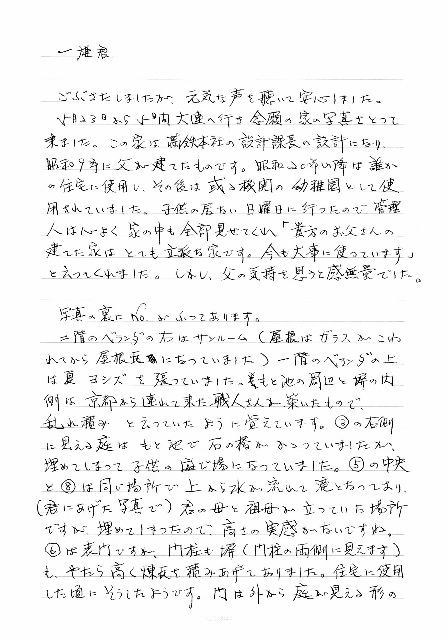 一雄君
ごぶさたしましたが、元気な声を聴いて安心しました。
5月23日から 内大連へ行き念願の家の写真をとって
来ました。この家は満鉄本社の設計課長の設計になり、
昭和9年に父が建てたものです。昭和20年以降は誰か
の住宅に使用し、その後は或る機関の幼稚園として使
用されていました。子供の居ない日曜日に行ったので管理
人は心よく家の中も全部見せてくれ「貴方のお父さんの
建てた家はとても立派な家です。今も大事に使っています」
と云ってくれました。しかし、父の気持を思うと感無量でした。
写真の裏にNo.がふってあります。
二階のベランダの右はサンルーム(屋根はガラスがこわ
れてから屋根瓦になっていました)一階のベランダの上
は夏ヨシズを張っていました。もと池の周辺と塀の内
側は京都から連れて来た職人さんが築いたもので、
乱れ積みと云っていたように覚えています。③の右側
に見える庭はもと池で石の橋がかかっていましたが、
埋めてしまって子供の遊び場になっていました。⑤の中央
と⑧は同じ場所で上から水が流れて滝となっており、
(君にあげた写真で)君の母と祖母が立っていた場所
ですが、埋めてしまったので、高さの実感がないですね。
⑥は表門ですが、門柱も塀(門柱の両側に見えます)
も、やたら高く煉瓦を積みあげてありました。住宅に使用
した頃にそうしたようです。門は外から庭が見える形の